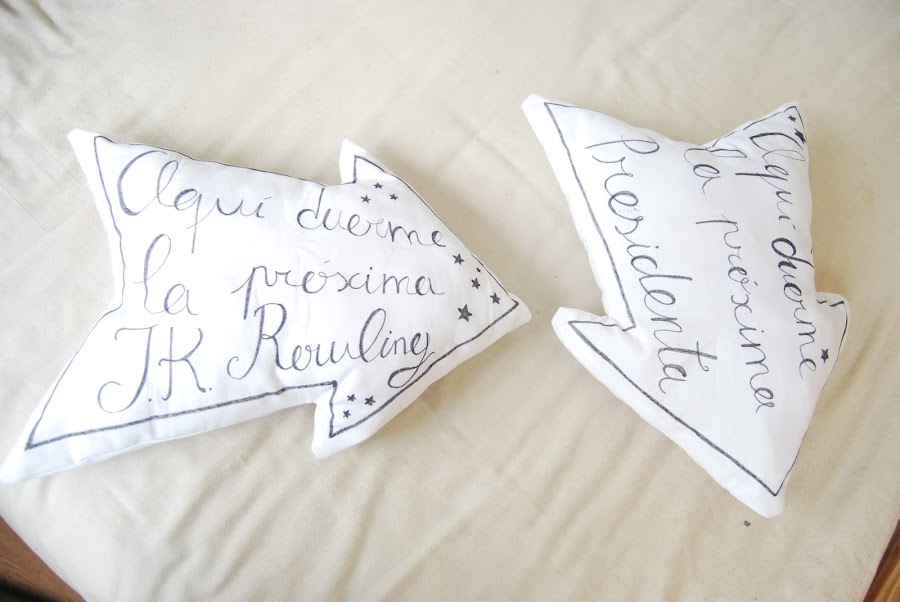 Aquí duerme
la próxima
J.K. Rowling
Aquí duerme
la próxima
Presidenta